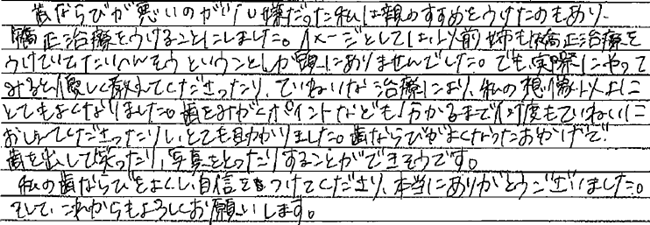 歯ならびが悪いのがいや嫌だった私は親のすすめをうけたのもあり、
矯正治療をうけることにしました。イメージとしては、以前姉も矯正治療を
うけていてたいへんそうということしか頭にありませんでした。でも、実際にやって
みると優しく教えてくださったり、ていねいな治療により、私の想像以上に
とてもよくなりました。歯をみがくポイントなども分かるまで何度もていねいに
おしえてくださったりし、とても助かりました。歯ならびがよくなったおかげで
歯を出して笑ったり、写真をとったりすることができそうです。
私の歯ならびをよくし、自信をつけてくださり、本当にありがとうございました。
そして、これからもよろしくお願いします。